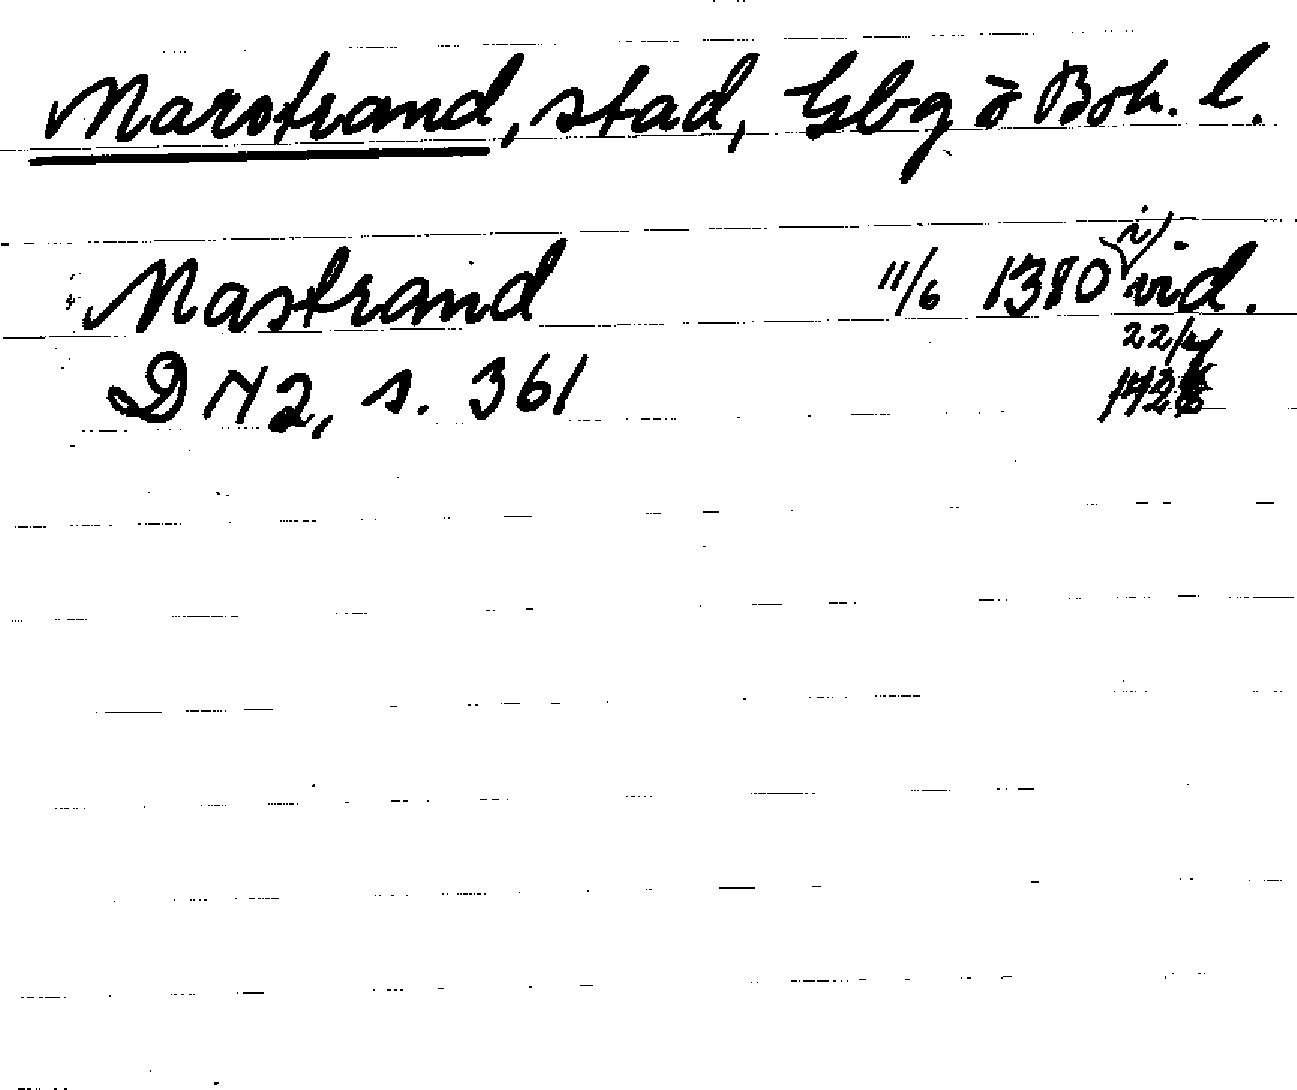 Marstrand, stad, Gbg o Boh. l.
Mastrand 11/6 1380 i vid.
22/4
D N 2, s. 361